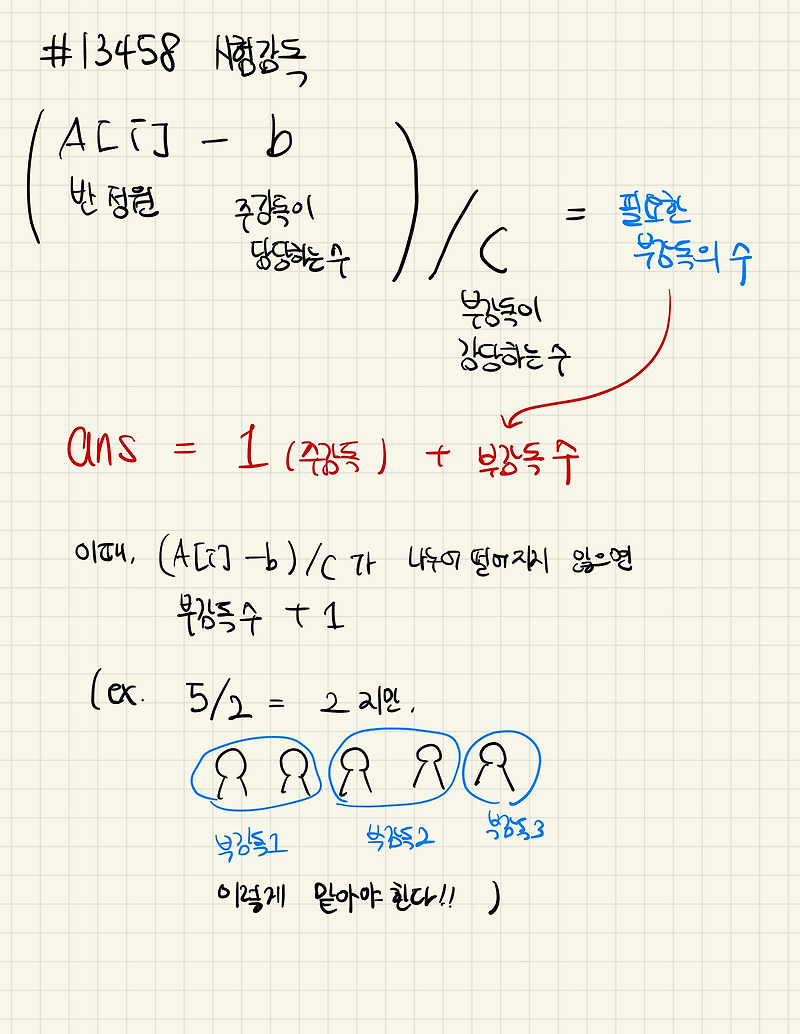 #13458 시험감독
( A[i] - b ) / C = 필요한 부감독의 수
반 정원
주감독이
담당하는 수
부감독이
감당하는 수
ans = 1 (주감독) + 부감독 수
이때, (A[i] -b)/C 가 나누어 떨어지지 않으면
부감독 수 + 1
(ex. 5/2 = 2 지만,
부감독1 부감독2 부감독3
이렇게 맡아야 한다!! )